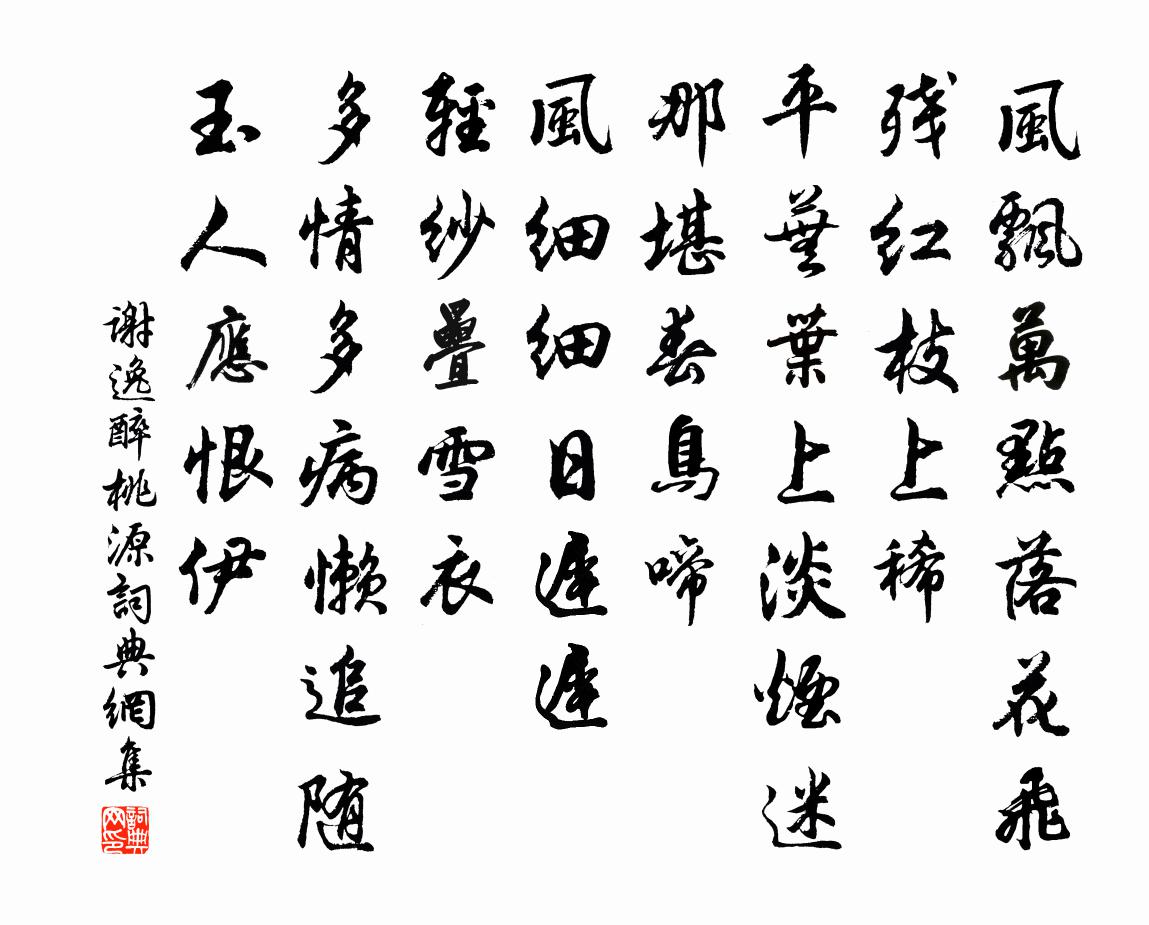 風飄萬點落花飛
残红枝上稀
平蕪葉上淡煙迷
那堪春鳥啼
風细细日遲遲
輕紗疊雪衣
多情多病懒追随
玉人應恨伊
谢逸醉桃源詞典網集
詞典网印